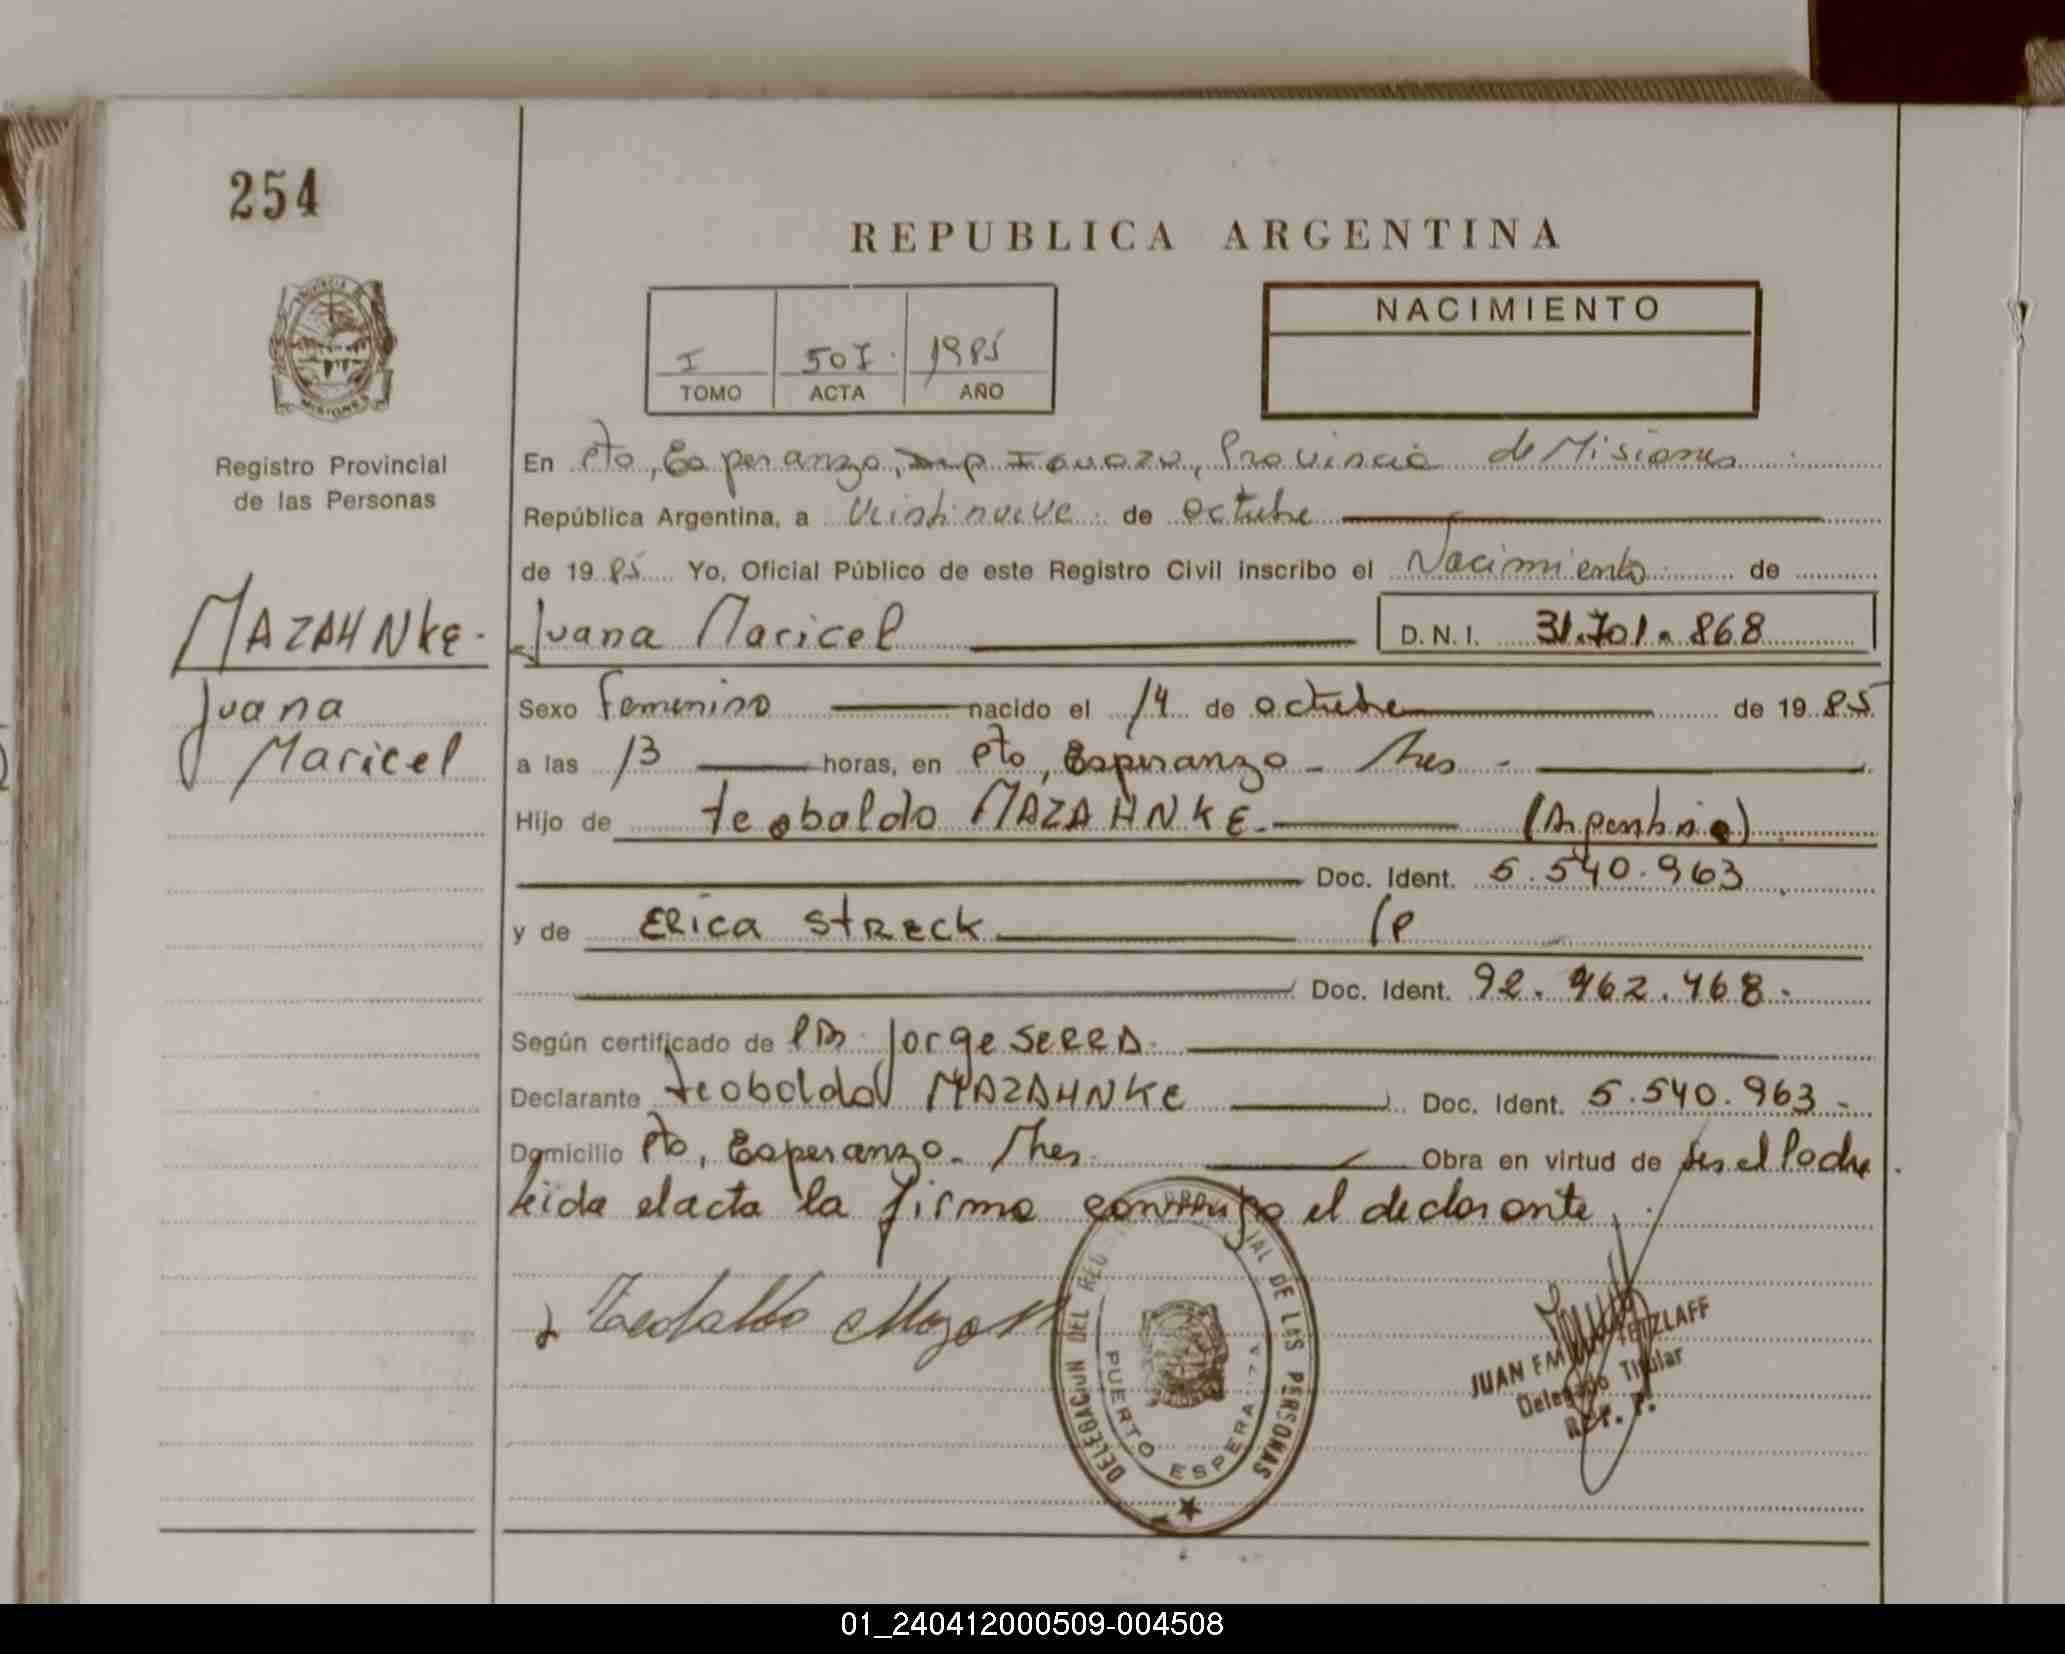 254
REPUBLICA ARGENTINA
NACIMIENTO
I 507. 1985
TOMO ACTA AÑO
Registro Provincial
de las Personas
En Pto, Esperanza, Dep Iguazu, Provincia de Misiones
República Argentina, a veintinueve de octubre
de 1985 Yo, Oficial Público de este Registro Civil inscribo el Nacimiento de
MAZAHNKE.
Juana
Maricel
Juana Maricel D.N.I. 31.701.868
Sexo Femenino nacido el 14 de octubre de 1985
a las 13 horas, en Pto, Esperanza - Mnes -
Hijo de teobaldo MAZAHNKE. (Argentina)
Doc. Ident. 5.540.963
y de ERica StReck
Doc. Ident. 92.462.468.
Según certificado de Jorge SeRRA.
Declarante teobaldo MAZAHNKE Doc. Ident. 5.540.963 -
Domicilio Pto, Esperanza - Mnes. Obra en virtud de ser el Padre.
Leida el acta la firma conmigo el declarante
DELEGACION DEL REG PROVINCIAL DE LAS PERSONAS
PUERTO ESPERANZA
JUAN TETZLAFF
Delegado Titular
R.P.P.
MISIONES
01_240412000509-004508